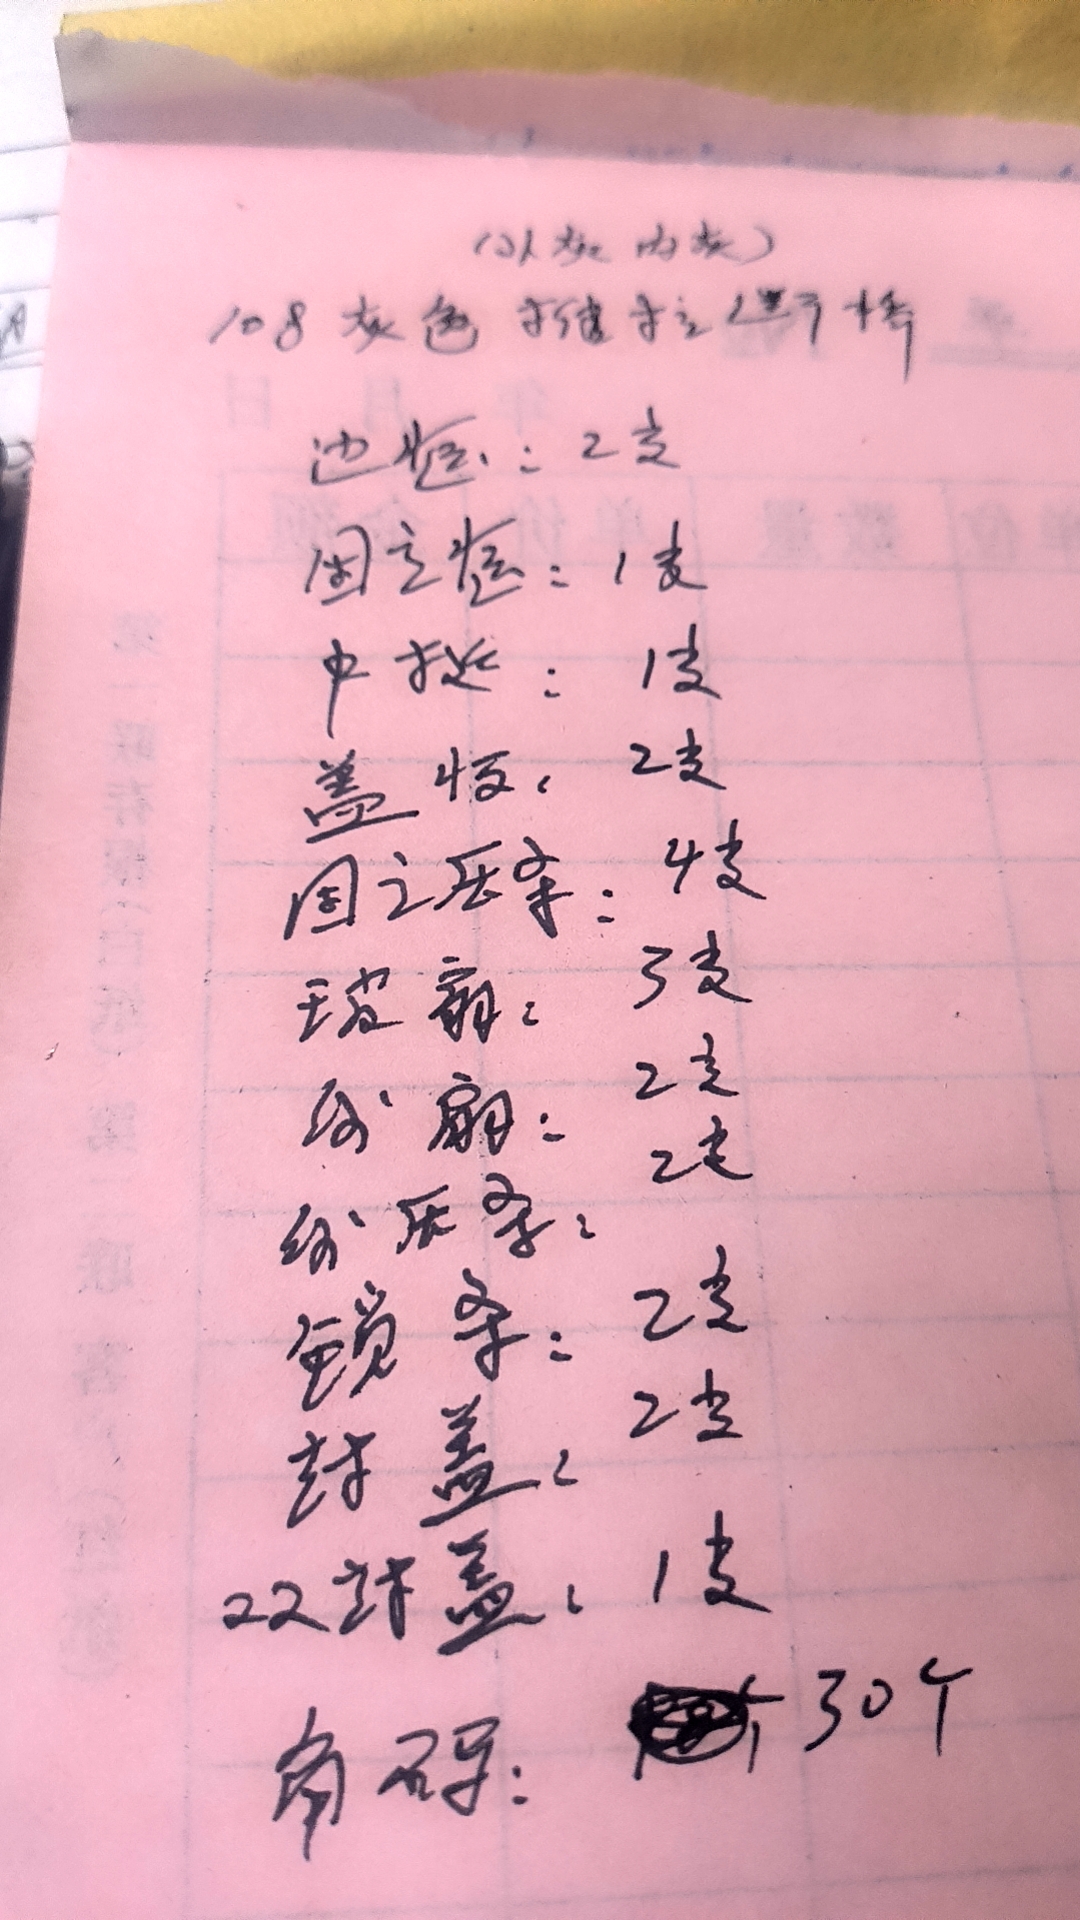 (外灰内灰)
108灰色
边框：2支
固定框：1支
中挺：1支
盖板：2支
固定压条：4支
玻扇：3支
纱扇：2支
纱压条：2支
锁条：2支
封盖：2支
22封盖：1支
角码：30个